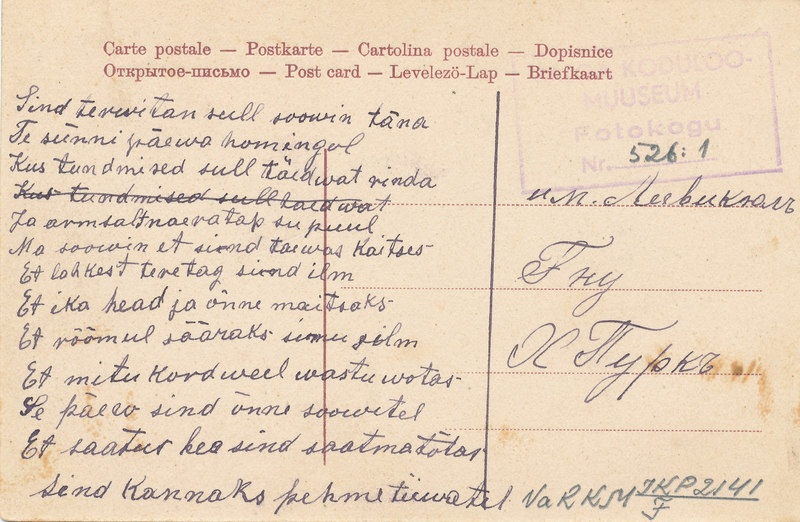 Carte postale — Postkarte — Cartolina postale — Dopisnice
Открытое-письмо — Post card — Levelező-Lap — Briefkaart
KODULOO-
MUUSEUM
Fotokogu
Nr. 526:1
Sind terwitan sull soowin täna
Te sünni päewa homingol
Kus tundmised sull täidwat rinda
Kus tundmised sull taedwat
Ja armsalt naeratap su puul
Ma soowin et sind taewas kaitses
Et lahkest teretag siind ilm
Et ika head ja õnne maitsaks
Et rõõmul sääraks sinu silm
Et mitu kord weel wastu wotas
Se päew sind õnne soowitel
Et saatus hea sind saatma tõtas
Sind kannaks pehme tiiwatel
им. Левикюль
Гну
Х Пуркъ
VaRKM JKP2141
F